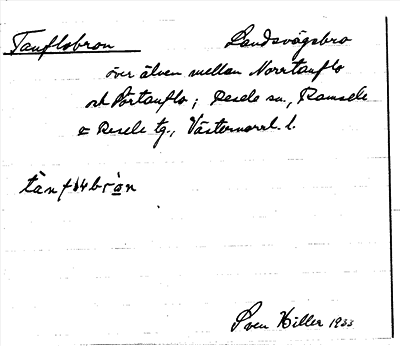 Tanflobron Landsvägsbro
över älven mellan Norrtanflo
och Örtanflo; Resele sn., Ramsele
o Resele tg., Västernorrl. l.
Sven Hiller 1933